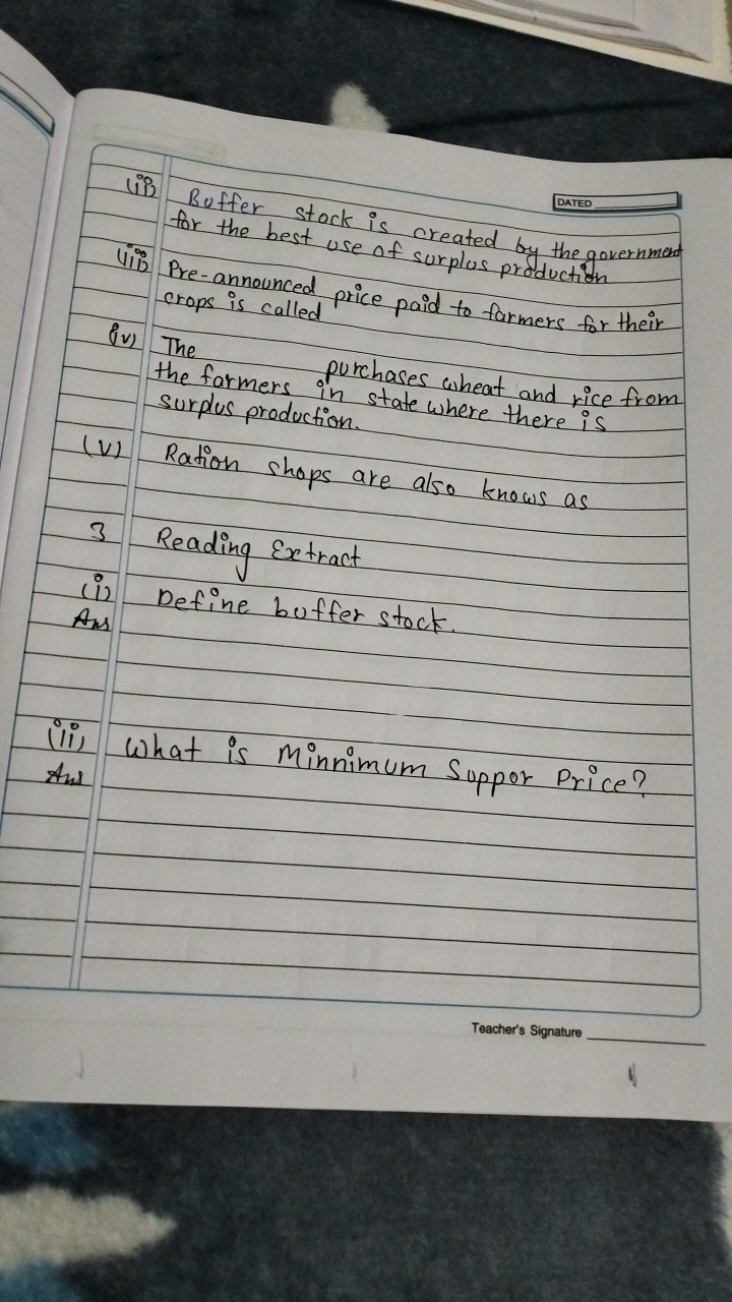 DATED
(ii) Buffer stock is created by the government
for the best use of surplus production
(iii) Pre-announced price paid to farmers for their
crops is called
(iv) The purchases wheat and rice from
the farmers in state where there is
surplus production.
(v) Ration shops are also knows as
3 Reading Extract
(i) Define buffer stock.
Ans
(ii) What is Minnimum Suppor Price?
Ans
Teacher's Signature